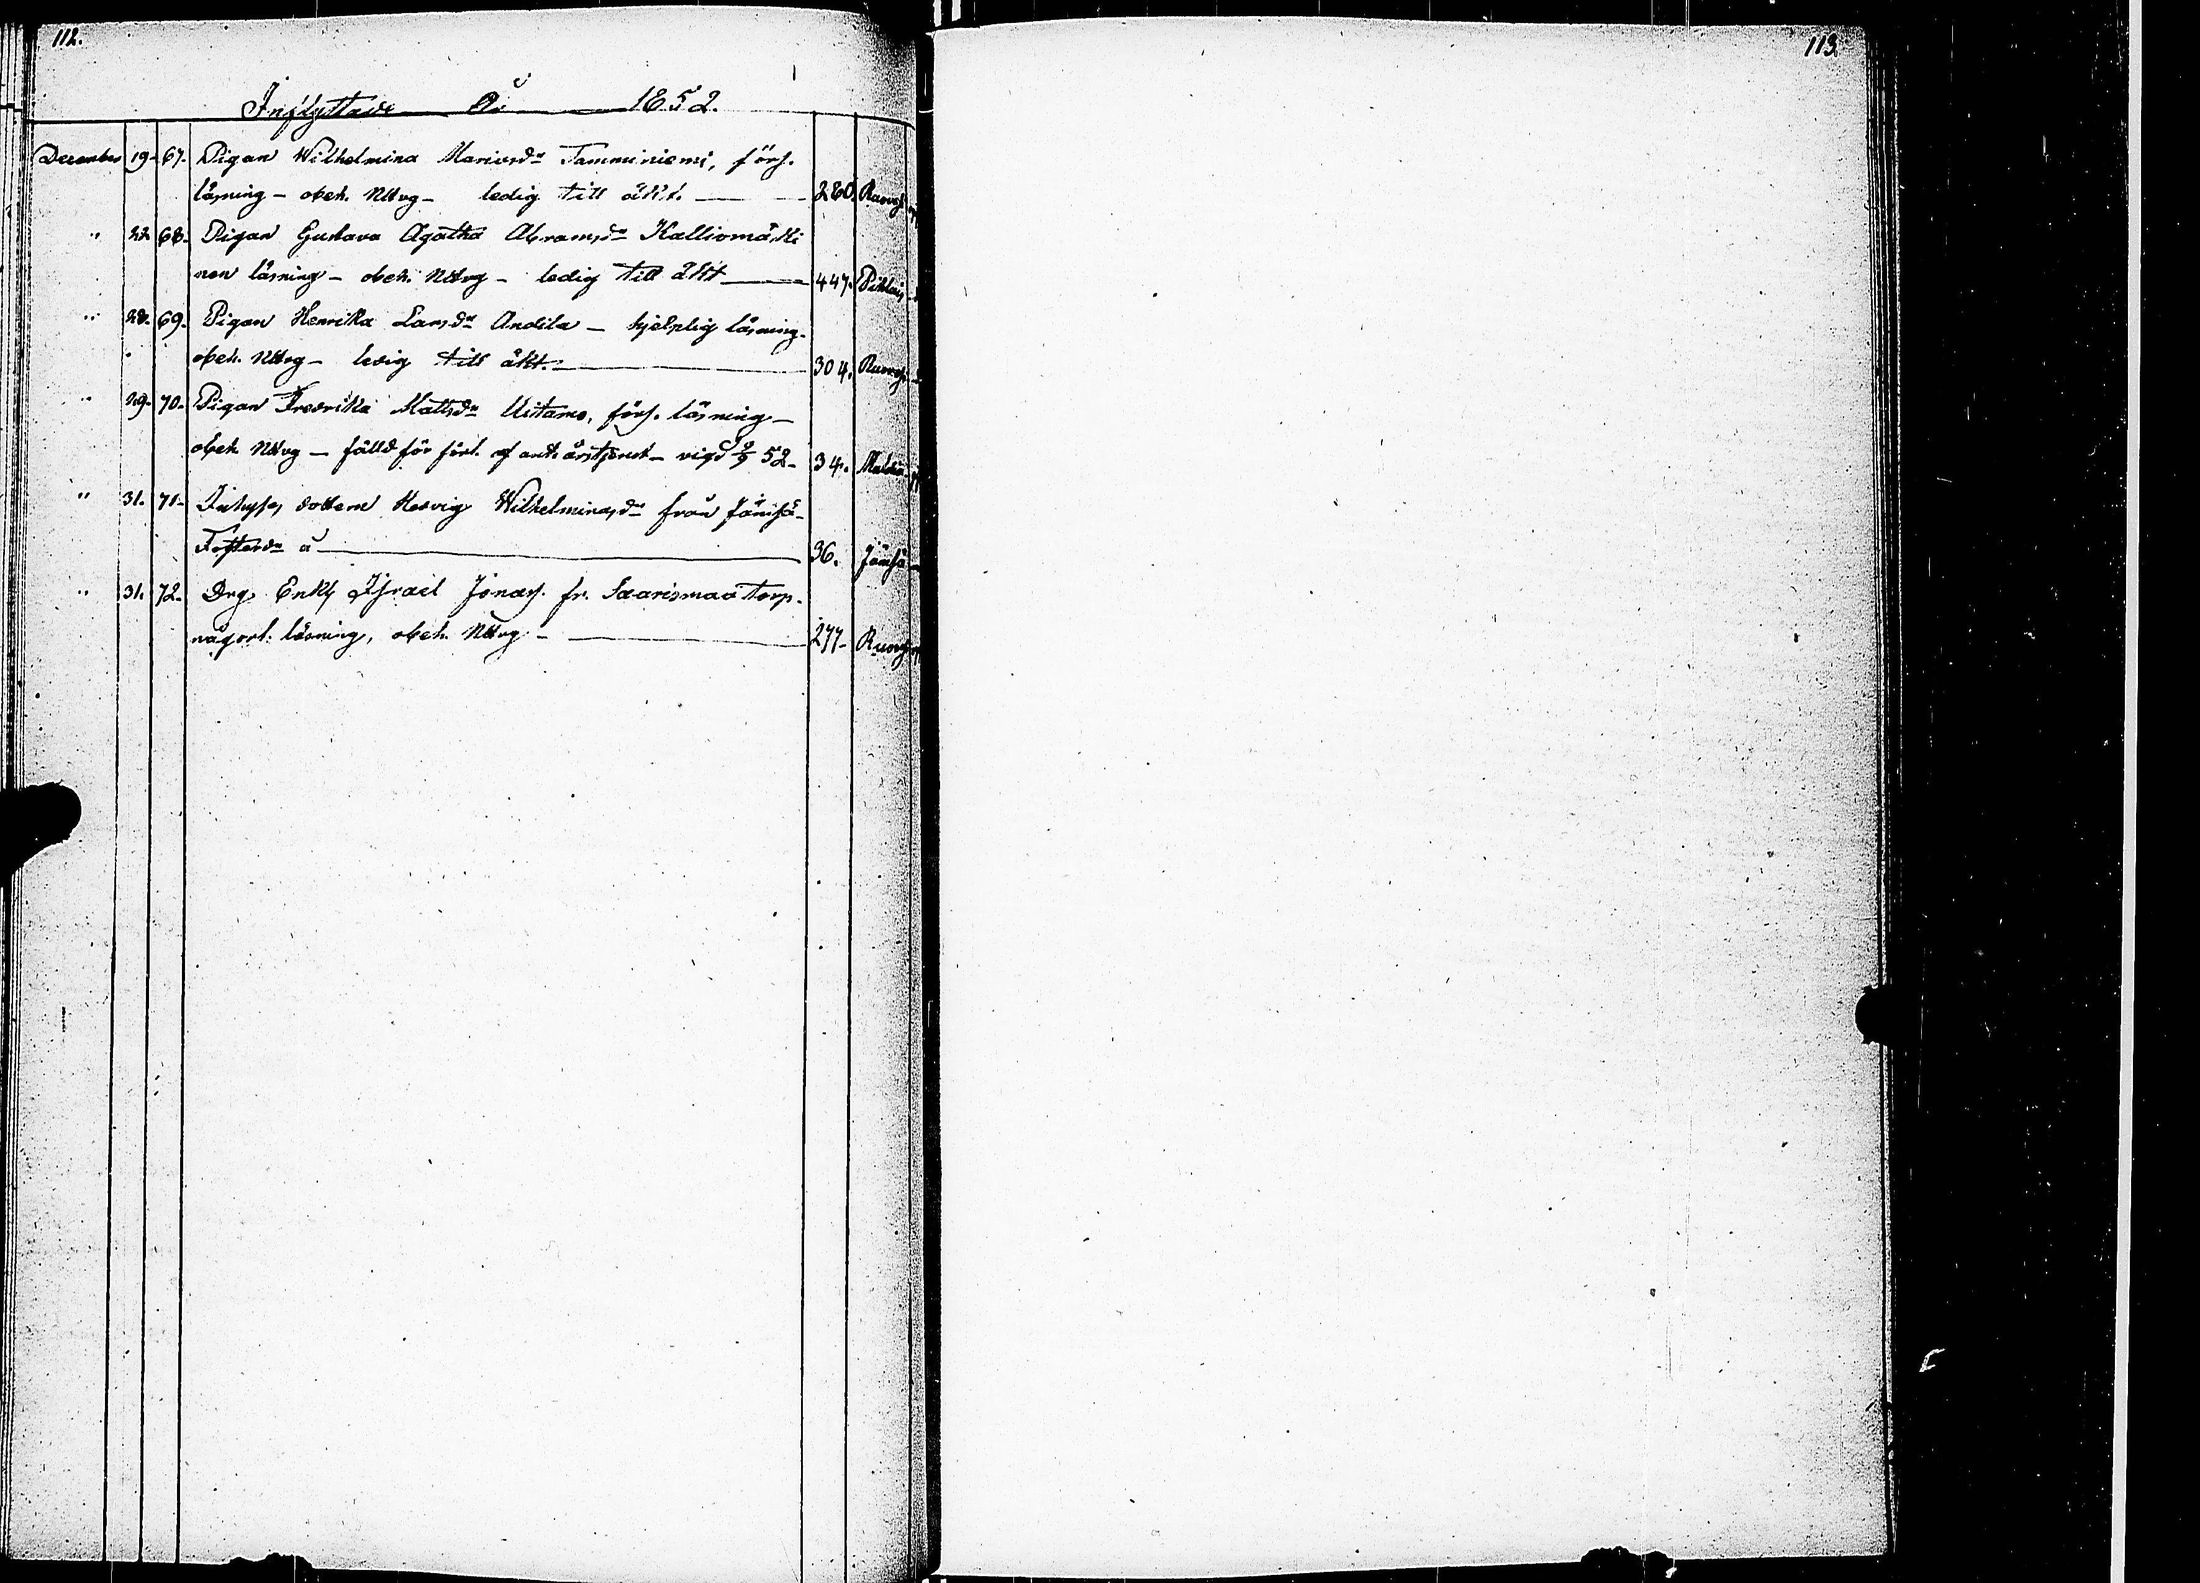 112.
113.
Inflyttade År 1852.
December 19. 67. Pigan Wilhelmina Mariaedr Tamminiemi, förs.
läsning – obeh. Nttvg – ledig till äkt. 280. Ruoves
" 22 68. Pigan Gustava Agatha Abramsdr Kalliomäki
nen läsning – obeh. Nttvg – ledig till äkt 447. Pihlaj
" 28. 69. Pigan Henrika Larsdr Andila – hjelplig läsning.
obeh. Nttvg – ledig till äkt. 304. Ruoves
" 29. 70. Pigan Fredrika Mattsdr Uitamo, förs. läsning –
obeh. Nttvg – fälld för förl. af ant. årstjenst – vigd 52. 34.
" 31. 71. Inhyses dottern Hedvig Wilhelminasdr från Jämsä –
Fosterdr å 36. Jämsä
" 31. 72. Drg. Enkl. Israel Jonass. fr. Saarismaa torp.
någorl. läsning, obeh. Nttvg – 277. Ruoves